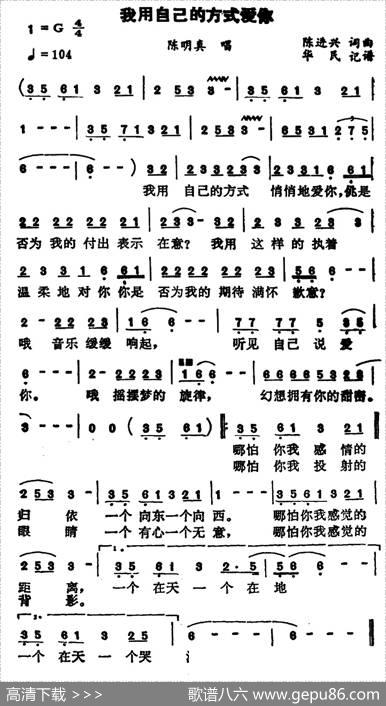 我用自己的方式爱你
1=G 4/4
♩=104
陈明真 唱
陈进兴 词曲
华民 记谱
(35 61 | 3 21 | 253 3 | 35 61 321
1 - - - | 35 71321 | 253 3 - | 6531 275
6 - - - | 6 - - ) 32 | 2323323 | 2331 6 61
我用 自己的方式 悄悄地爱你,你是
22 22 22 22 | 233- 32 | 22 22 2 233
否为 我的 付出 表示 在意? 我用 这样的执着
2 3 3 1 6 61 | 22 22 22 233 | 56 6 - -
温柔地对你你是 否为我的期待满怀 歉意?
2 - 22 23 | 16 6 - - | 77 77 5 35
哦 音乐 缓缓 响起, 听见 自己 说 爱
6 - - - | 2 - 22223 | 16 6 - - | 66665323
你。 哦 摇摆梦的 旋律, 幻想拥有你的甜密。
3 - - - | 0 0 (35 61) | 35 61 3 21
哪怕 你我 感 情的
哪怕 你我 投 射的
253 3 - | 35 61321 | 1 - - - | 35613 21
归 依 一个 向东一个向 西。 哪怕你我感觉的
眼 睛 一个 有心一个无 意, 哪怕你我感觉的
1.
253 3 - | 35 61 3 2·5 | 5 56 6 - | 6 - - -
距 离, 一个 在天 一 个 在 地
背 影。
2.
35 61 3 25 | 6 - - - | 6 - - - | 6 - - -
一个 在天 一个哭
高清下载 >>>
歌谱八六 www.gepu86.com